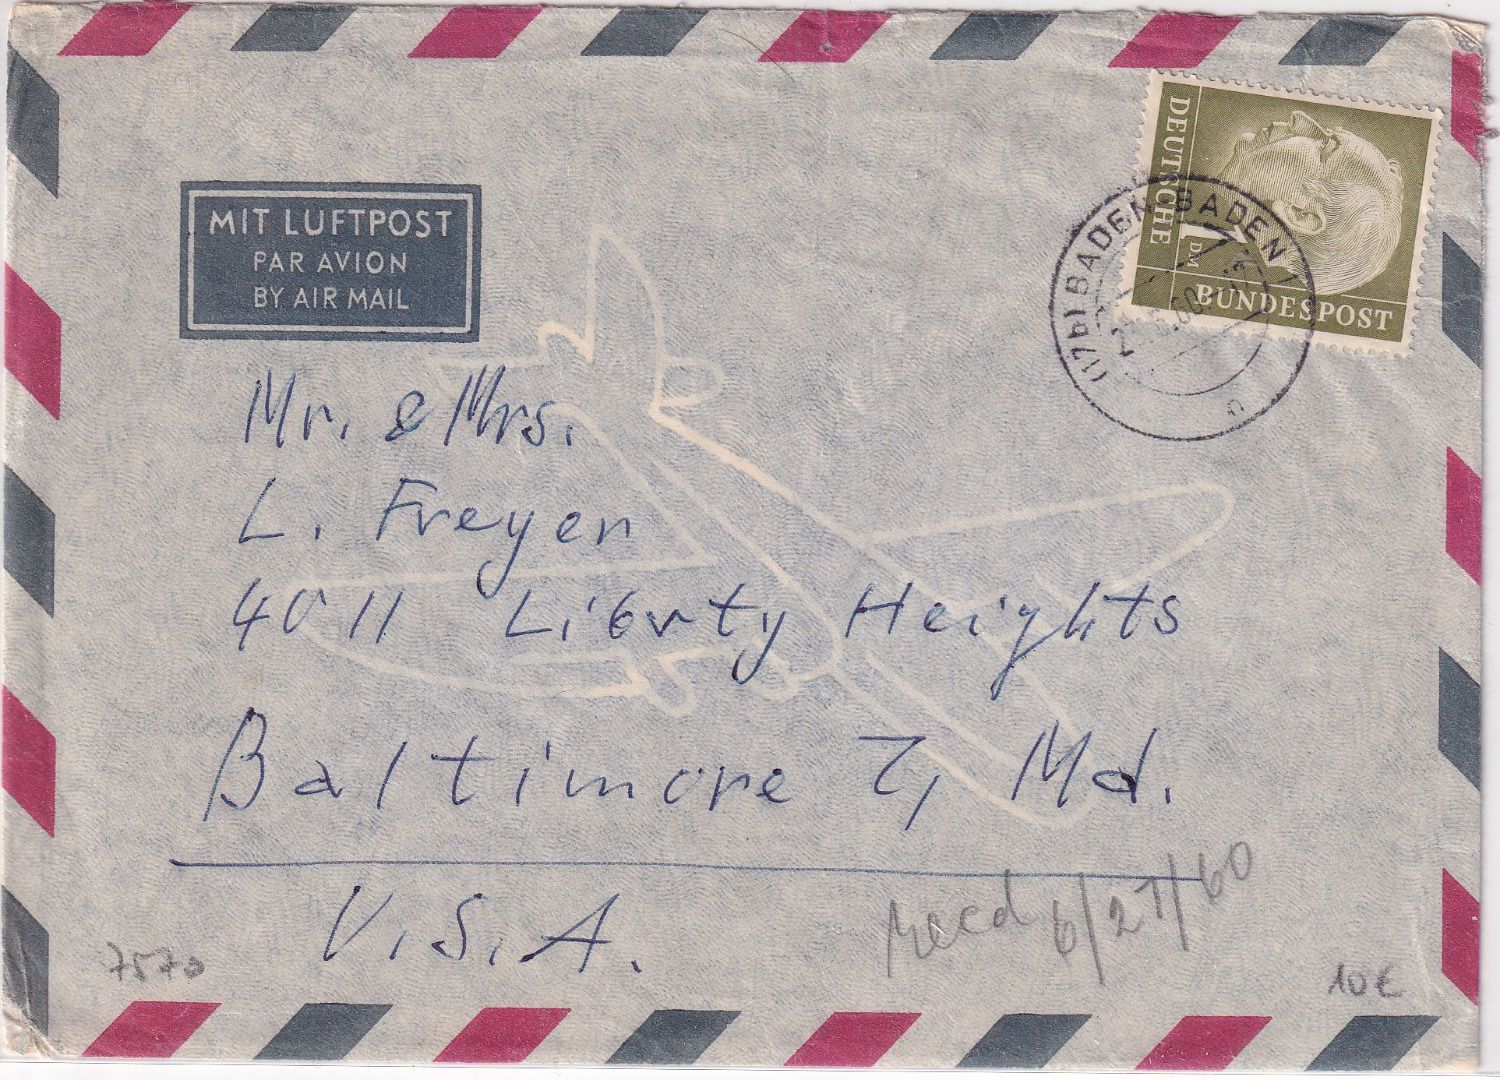 MIT LUFTPOST
PAR AVION
BY AIR MAIL
DEUTSCHE
BUNDESPOST
1
DM
(17b) BADEN-BADEN 1
.60
n
Mr. & Mrs.
L. Freyer
4011 Liberty Heights
Baltimore 7, Md.
U.S.A.
Recd 6/27/60
7570
10€